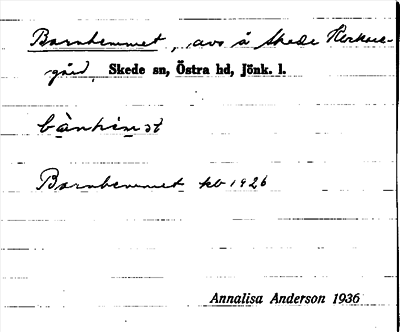 Barnhemmet, avs å Skede Kyrkoe-
gård, Skede sn, Östra hd, Jönk. l.
bànhimət
Barnhemmet kb 1926
Annalisa Anderson 1936